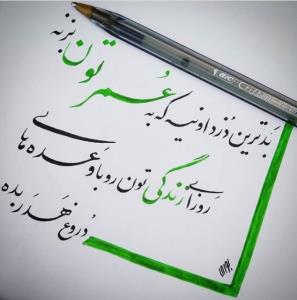 BIC CRISTAL
بدترین دزد اونیه که به
عمرتون بزنه
روزای زندگی تون رو با وعده های
دروغ هدر بده